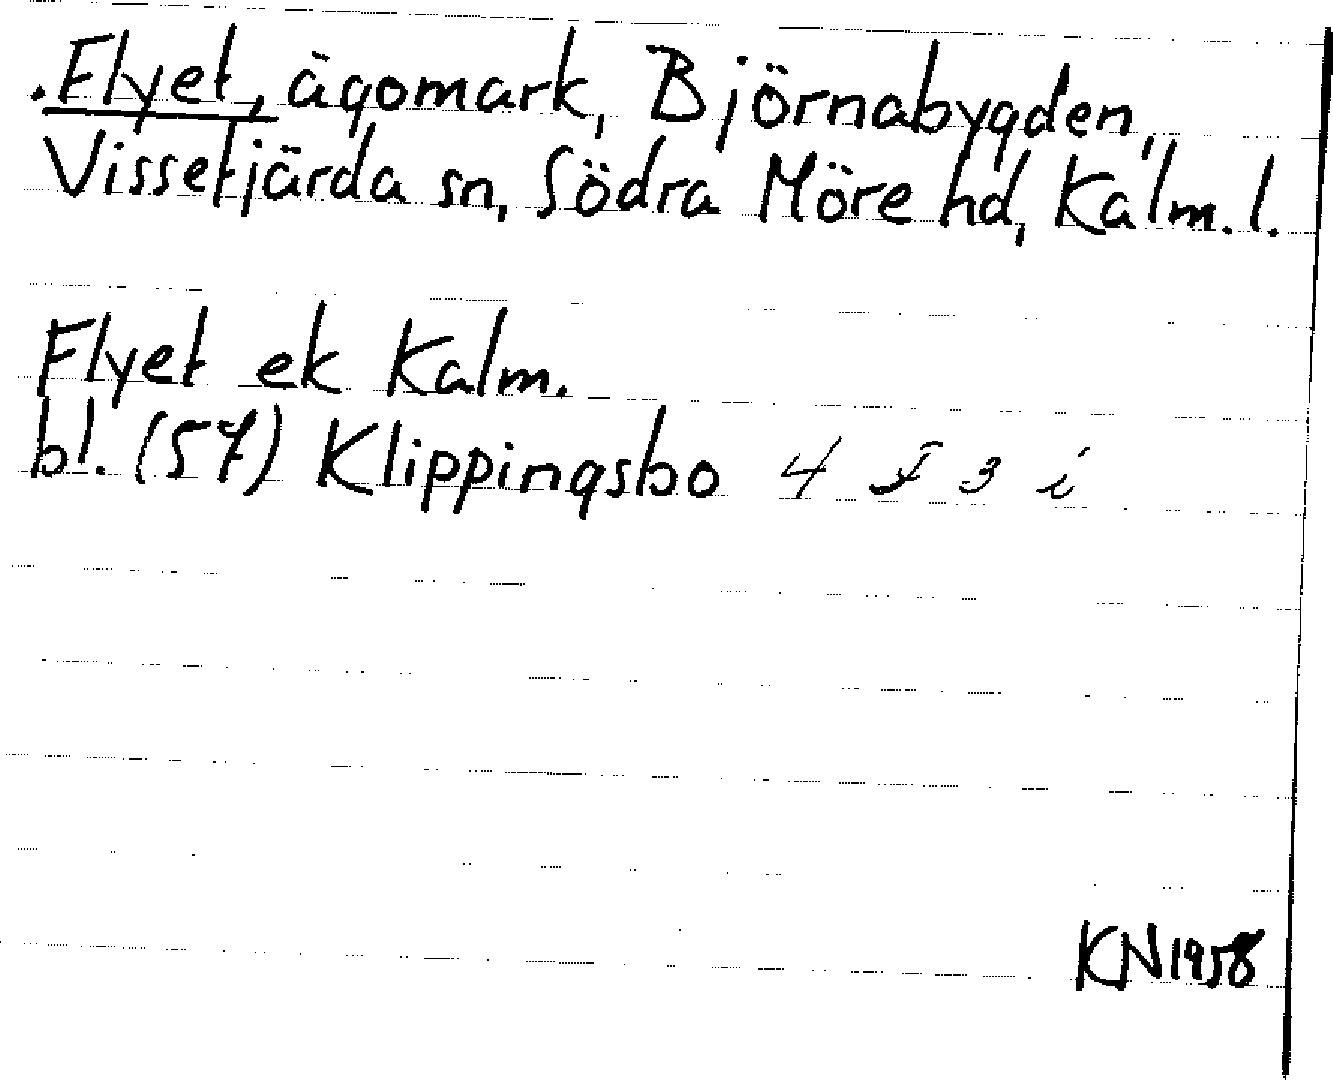 .Flyet, ägomark, Björnabygden,
Vissefjärda sn, Södra Möre hd, Kalm. l.
Flyet ek Kalm.
bl. (57) Klippingsbo 4 F 3 i
KN1958